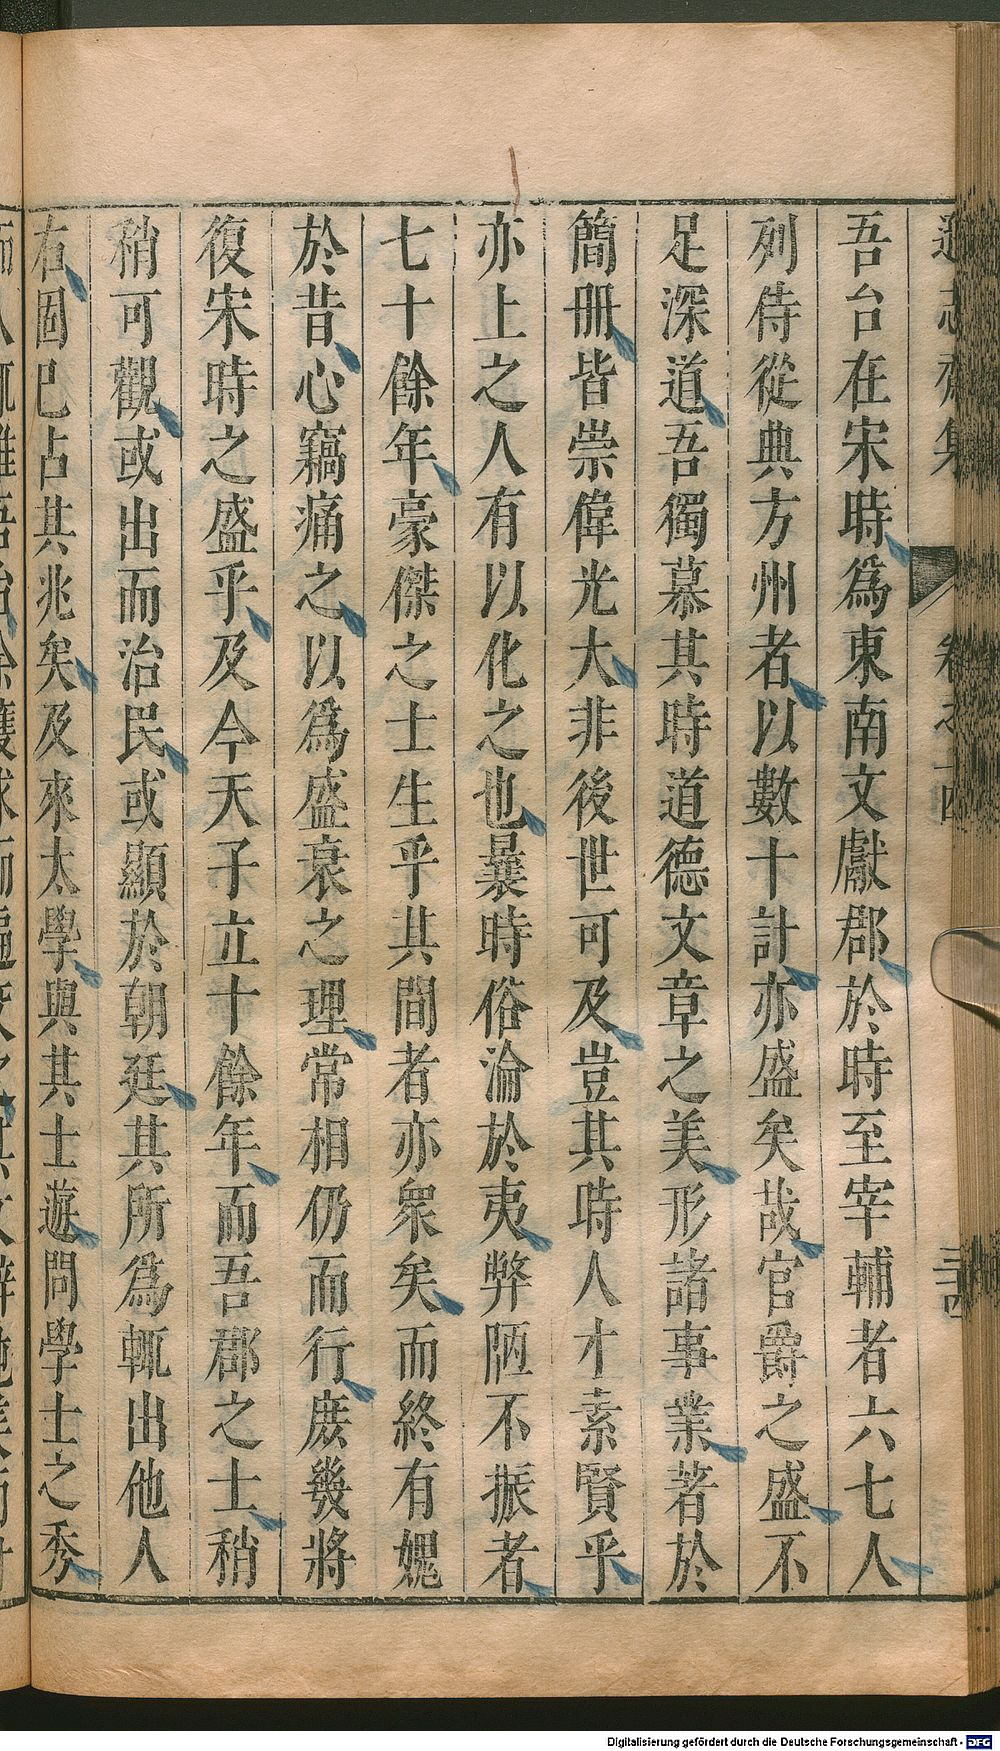 吾台在宋時爲東南文獻郡於時至宰輔者六七人
列侍從典方州者以數十計亦盛矣哉官爵之盛不
足深道吾獨慕其時道德文章之美形諸事業著於
簡冊皆崇偉光大非後世可及豈其時人才素賢乎
亦上之人有以化之也曩時俗淪於夷弊陋不振者
七十餘年豪傑之士生乎其間者亦衆矣而終有媿
於昔心竊痛之以爲盛衰之理常相仍而行庻幾將
復宋時之盛乎及今天子立十餘年而吾郡之士稍
稍可觀或出而治民或顯於朝廷其所爲輒出他人
右固已占其兆矣及來太學與其士遊問學士之秀
Digitalisierung gefördert durch die Deutsche Forschungsgemeinschaft - DFG